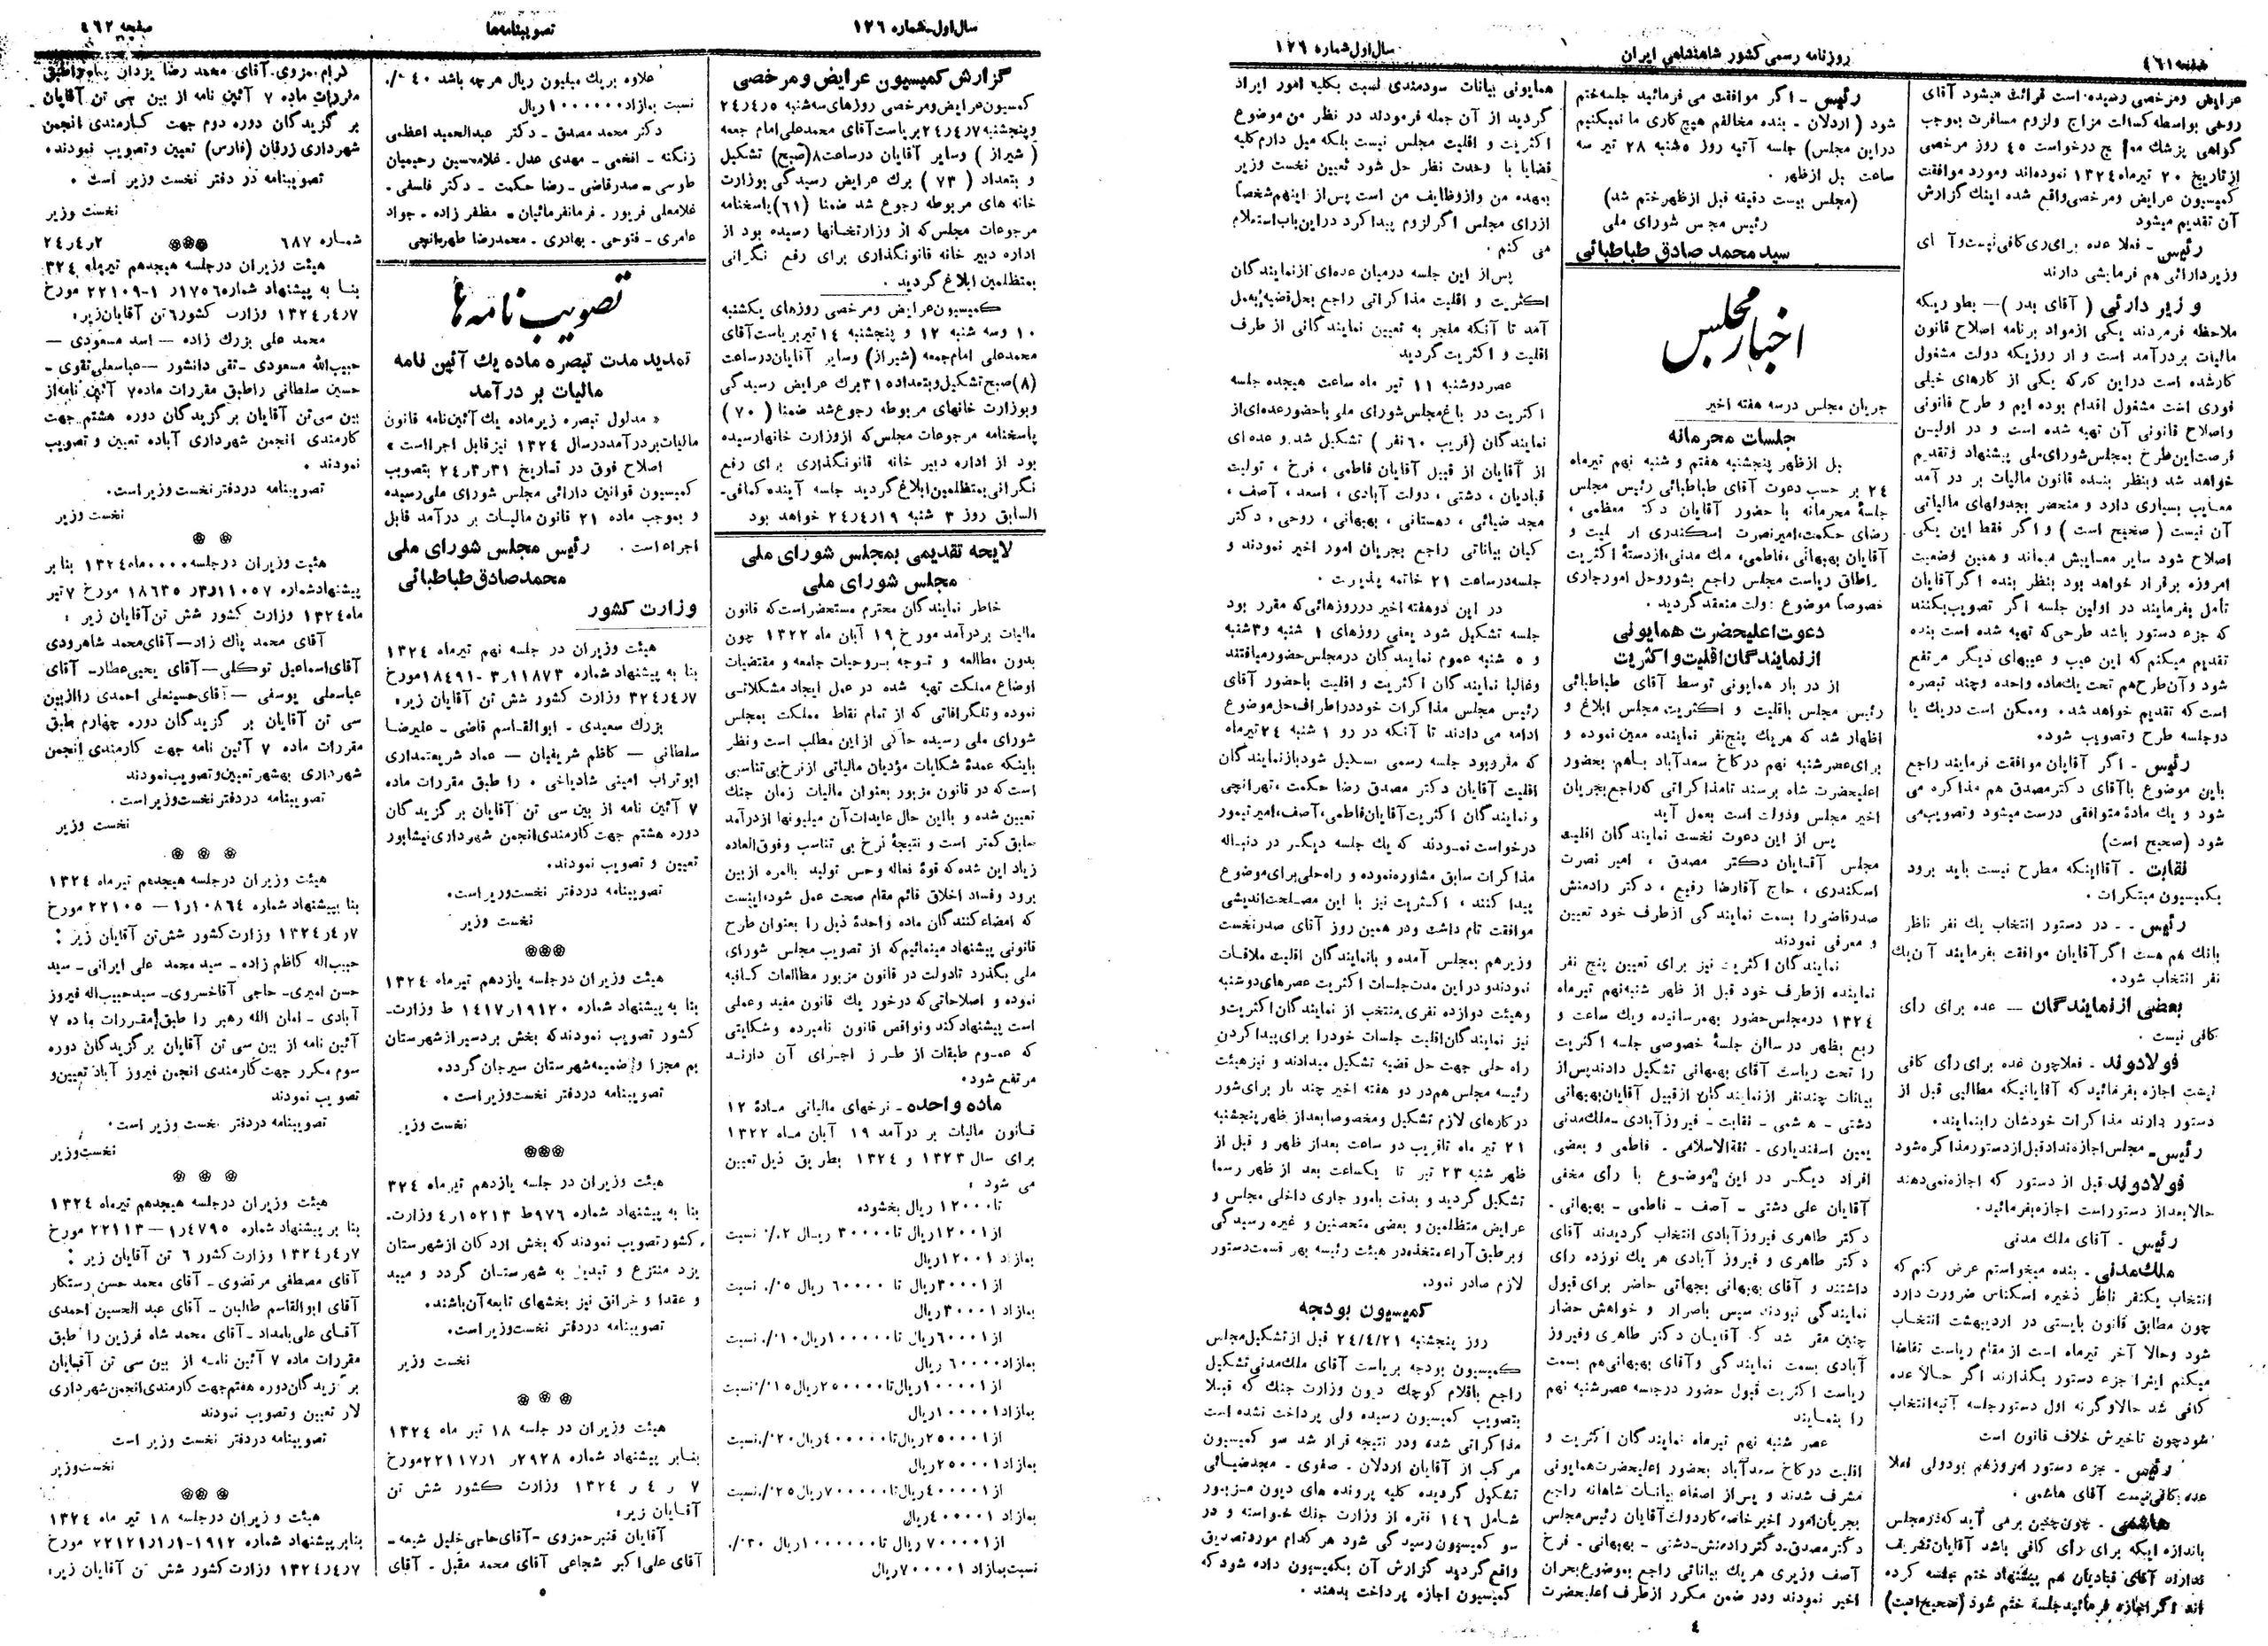 صفحه ٤٦١
روزنامه رسمی کشور شاهنشاهی ایران
سال اول شماره ١٢٦
عرایض ومرخصی رسیده است قرائت میشود آقای
روحی بواسطه کسالت مزاج ولزوم مسافرت بموجب
گواهی پزشك درخواست ٤٥ روز مرخصی
از تاریخ ٢٠ تیرماه ١٣٢٤ نموده‌اند ومورد موافقت
کمیسیون عرایض ومرخصی واقع شده اینك گزارش
آن تقدیم میشود
رئیس - فعلا عده برای رای کافی نیست و آقای
وزیر دارائی هم فرمایشی دارند
وزیر دارئی ( آقای بدر ) — بطوریکه
ملاحظه فرمودند یکی از مواد برنامه اصلاح قانون
مالیات بردرآمد است و از روزیکه دولت مشغول
کار شده است دراین کار که یکی از کارهای خیلی
فوری است مشغول اقدام بوده ایم و طرح قانونی
واصلاح قانونی آن تهیه شده است و در اولین
فرصت این طرح بمجلس شورای ملی پیشنهاد وتقدیم
خواهد شد وبنظر بنده قانون مالیات بر در آمد
معایب بسیاری دارد و منحصر بجدولهای مالیاتی
آن نیست ( صحیح است ) و اگر فقط این یکی
اصلاح شود سایر معایبش میماند و همین وضعیت
امروزه برقرار خواهد بود بنظر بنده اگر آقایان
تأمل بفرمایند در اولین جلسه اگر تصویب بکنند
که جزء دستور باشد طرحی که تهیه شده است بنده
تقدیم میکنم که این عیب و عیبهای دیگر مرتفع
شود و آن طرح هم تحت یك ماده واحده وچند تبصره
است که تقدیم خواهد شد. وممکن است دریك یا
دوجلسه طرح وتصویب شود.
رئیس - اگر آقایان موافقت فرمایند راجع
باین موضوع با آقای دکتر مصدق هم مذاکره می
شود و یك مادهٔ متوافقی درست میشود وتصویب می
شود (صحیح است)
نقابت - آقا اینکه مطرح نیست باید برود
بکمیسیون مبتکرات .
رئیس - - در دستور انتخاب یك نفر ناظر
بانك هم هست اگر آقایان موافقت بفرمایند آن یك
نفر انتخاب شود.
بعضی از نمایندگان — عده برای رأی
کافی نیست .
فولادوند - فعلا چون عده برای رأی کافی
نیست اجازه بفرمائید که آقایانیکه مطالبی قبل از
دستور دارند مذاکرات خودشان را بنمایند.
رئیس - مجلس اجازه نداد قبل از دستور مذاکره شود
فولادوند قبل از دستور که اجازه نمی‌دهند
حالا بعد از دستور است اجازه بفرمائید.
رئیس - آقای ملك مدنی
ملك مدنی - بنده میخواستم عرض کنم که
انتخاب یکنفر ناظر ذخیره اسکناس ضرورت دارد
چون مطابق قانون بایستی در اردیبهشت انتخاب
شود وحالا آخر تیرماه است از مقام ریاست تقاضا
میکنم اینرا جزء دستور بگذارند اگر حالا عده
کافی شد حالا وگرنه اول دستور جلسه آتیه انتخاب
شود چون تاخیرش خلاف قانون است
رئیس - جزء دستور امروز هم بود ولی فعلا
عده کافی نیست آقای هاشمی .
هاشمی - چون چنین برمی آید که در مجلس
باندازه ایکه برای رأی کافی باشد آقایان تشریف
ندارند آقای قبادیان هم پیشنهاد ختم جلسه کرده
اند اگر اجازه فرمائید جلسه ختم شود (صحیح است)
رئیس - اگر موافقت می فرمائید جلسه ختم
شود ( اردلان - بنده مخالفم هیچ کاری ما نمیکنیم
دراین مجلس) جلسه آتیه روز ٥شنبه ٢٨ تیر سه
ساعت قبل ازظهر .
(مجلس بیست دقیقه قبل ازظهر ختم شد)
رئیس مجلس شورای ملی
سید محمد صادق طباطبائی
اخبار مجلس
جریان مجلس درسه هفته اخیر
جلسات محرمانه
قبل ازظهر پنجشنبه هفتم و شنبه نهم تیرماه
٢٤ بر حسب دعوت آقای طباطبائی رئیس مجلس
جلسهٔ محرمانه با حضور آقایان دکتر معظمی ،
رضای حکمت، امیرنصرت اسکندری از اقلیت و
آقایان بهبهانی ،فاطمی، ملك مدنی، ازدستهٔ اکثریت
راطاق ریاست مجلس راجع بشور وحل امورجاری
خصوصاً موضوع دولت منعقد گردید .
دعوت اعلیحضرت همایونی
از نمایندگان اقلیت و اکثریت
از در بار همایونی توسط آقای طباطبائی
رئیس مجلس باقلیت و اکثریت مجلس ابلاغ و
اظهار شد که هریك پنج‌نفر نماینده معین نموده و
برای عصر شنبه نهم درکاخ سعدآباد باهم بحضور
اعلیحضرت شاه برسند تا مذاکراتی که راجع بجریان
اخیر مجلس ودولت است بعمل آید
پس از این دعوت نخست نمایندگان اقلیت
مجلس آقایان دکتر مصدق ، امیر نصرت
اسکندری ، حاج آقارضا رفیع ، دکتر رادمنش
صدرقاضی را بسمت نمایندگی ازطرف خود تعیین
و معرفی نمودند
نمایندگان اکثریت نیز برای تعیین پنج نفر
نماینده ازطرف خود قبل از ظهر شنبه نهم تیرماه
١٣٢٤ درمجلس حضور بهمرسانیده ویك ساعت و
ربع بظهر در سالن جلسهٔ خصوصی جلسه اکثریت
را تحت ریاست آقای بهبهانی تشکیل دادند پس از
بیانات چندنفر از نمایندگان از قبیل آقایان بهبهانی
دشتی - هاشمی - نقابت - فیروزآبادی - ملك مدنی
یمین اسفندیاری - ثقة‌الاسلامی - فاطمی و بعضی
افراد دیگر در این موضوع با رأی مخفی
آقایان علی دشتی - آصف - فاطمی - بهبهانی -
دکتر طاهری فیروزآبادی انتخاب گردیدند آقای
دکتر طاهری و فیروز آبادی هر یك نوزده رأی
داشتند و آقای بهبهانی بجهاتی حاضر برای قبول
نمایندگی نبودند سپس باصرار و خواهش حضار
چنین مقرر شد که آقایان دکتر طاهری وفیروز
آبادی بسمت نمایندگی وآقای بهبهانی هم بسمت
ریاست اکثریت قبول حضور درجلسه عصر شنبه نهم
را بنمایند
عصر شنبه نهم تیرماه نمایندگان اکثریت و
اقلیت درکاخ سعدآباد بحضور اعلیحضرت همایونی
مشرف شدند و پس از اصغاء بیانات شاهانه راجع
بجریان امور اخیر خاصه کار دولت آقایان رئیس مجلس
دکتر مصدق-دکتر رادمنش-دشتی - بهبهانی - فرخ
آصف وزیری هریك بیاناتی راجع بموضوع بحران
اخیر نمودند ودر ضمن مکرر ازطرف اعلیحضرت
همایونی بیانات سودمندی نسبت بکلیه امور ایراد
گردید از آن جمله فرمودند در نظر من موضوع
اکثریت و اقلیت مجلس نیست بلکه میل دارم کلیه
قضایا با وحدت نظر حل شود تعیین نخست وزیر
بعهده من وازوظایف من است پس از اینهم شخصاً
ازرای مجلس اگر لزوم پیدا کرد دراین باب استعلام
می کنم .
پس از این جلسه درمیان عده‌ای ازنمایندگان
اکثریت و اقلیت مذاکراتی راجع بحل قضیه بعمل
آمد تا آنکه منجر به تعیین نمایندگانی از طرف
اقلیت و اکثریت گردید
عصر دوشنبه ١١ تیر ماه ساعت هیجده جلسه
اکثریت در باغ مجلس شورای ملی باحضور عده‌ای از
نمایندگان (قریب ٦٠ نفر ) تشکیل شد و عده ای
از آقایان از قبیل آقایان فاطمی ، فرخ ، تولیت
قبادیان ، دشتی ، دولت آبادی ، اسعد ، آصف ،
مجد ضیائی ، دهستانی ، بهبهانی ، روحی ، دکتر
کیان بیاناتی راجع بجریان امور اخیر نمودند و
جلسه درساعت ٢١ خاتمه پذیرفت .
در این دوهفته اخیر درروزهائی که مقرر بود
جلسه تشکیل شود یعنی روزهای ١ شنبه و٣شنبه
و ٥ شنبه عموم نمایندگان درمجلس حضور میافتند
وغالبا نمایندگان اکثریت و اقلیت باحضور آقای
رئیس مجلس مذاکرات خود دراطراف حل موضوع
ادامه می دادند تا آنکه در روز ١ شنبه ٢٤ تیرماه
که مقرربود جلسه رسمی تشکیل شود بازنمایندگان
اقلیت آقایان دکتر مصدق رضا حکمت، تهرانچی
و نمایندگان اکثریت آقایان فاطمی، آصف، امیرتیمور
درخواست نمودند که یك جلسه دیگر در دنباله
مذاکرات سابق مشاوره نموده و راه حلی برای موضوع
پیدا کنند ، اکثریت نیز با این مصلحت‌اندیشی
موافقت تام داشت ودر همین روز آقای صدر نخست
وزیر هم بمجلس آمده و با نمایندگان اقلیت ملاقات
نمودند و در این مدت جلسات اکثریت عصرهای دوشنبه
وهیئت دوازده نفری منتخب از نمایندگان اکثریت و
نیز نمایندگان اقلیت جلسات خود را برای پیدا کردن
راه حلی جهت حل قضیه تشکیل میدادند و نیز هیئت
رئیسه مجلس هم در دو هفته اخیر چند بار برای شور
درکارهای لازم تشکیل ومخصوصاً بعد از ظهر پنجشنبه
٢١ تیر ماه تاقریب دو ساعت بعداز ظهر و قبل از
ظهر شنبه ٢٣ تیر تا یکساعت بعد از ظهر رسماً
تشکیل گردید و بدقت بامور جاری داخلی مجلس و
عرایض متظلمین و بعضی متحصنین و غیره رسیدگی
وبرطبق آراء متخذه در هیئت رئیسه بهر قسمت دستور
لازم صادر نمود.
کمیسیون بودجه
روز پنجشنبه ٢٤/٤/٢١ قبل از تشکیل مجلس
کمیسیون بودجه بریاست آقای ملك‌مدنی تشکیل
راجع باقلام کوچك دیون وزارت جنك که قبلا
بتصویب کمیسیون رسیده ولی پرداخت نشده است
مذاکراتی شده ودر نتیجه قرار شد سو کمیسیون
مرکب از آقایان اردلان - صفوی - مجدضیائی
تشکول گردیده کلیه پرونده های دیون مزبور
شامل ١٤٦ فقره از وزارت جنك خواسته و در
سو کمیسیون رسیدگی شود هرکدام مورد تصدیق
واقع گردید گزارش آن بکمیسیون داده شود که
کمیسیون اجازه پرداخت بدهند .
٤
سال اول-شماره ١٢٦
تصویبنامه‌ها
صفحه ٤٦٢
گزارش کمیسیون عرایض و مرخصی
کمسیون عرایض ومرخصی روزهای سه‌شنبه ٥ر٤ر٢٤
و پنجشنبه ٧ر٤ر٢٤ بریاست آقای محمدعلی امام جمعه
( شیراز ) وسایر آقایان درساعت ٨(صبح) تشکیل
و بتعداد ( ٧٣ ) برك عرایض رسیدگی بوزارت
خانه های مربوطه رجوع شد ضمنا (٦١) پاسخنامه
مرجوعات مجلس که از وزارتخانها رسیده بود از
اداره دبیر خانه قانونگذاری برای رفع نگرانی
بمتظلمین ابلاغ گردید .
کمیسیون عرایض ومرخصی روزهای یکشنبه
١٠ وسه شنبه ١٢ و پنجشنبه ١٤ تیر بریاست آقای
محمدعلی امام جمعه (شیراز) وسایر آقایان درساعت
(٨)صبح تشکیل و بتعداده ٣١ برك عرایض رسیدگی
وبوزارت خانهای مربوطه رجوع شد ضمنا ( ٧٠ )
پاسخنامه مرجوعات مجلس که ازوزارت خانها رسیده
بود از اداره دبیر خانه قانونگذاری برای رفع
نگرانی بمتظلمین ابلاغ گردید جلسه آینده کمافی-
السابق روز ٣ شنبه ١٩ر٤ر٢٤ خواهد بود
لایحه تقدیمی بمجلس شورای ملی
مجلس شورای ملی
خاطر نمایندگان محترم مستحضر است که قانون
مالیات بردرآمد مورخ ١٩ آبان ماه ١٣٢٢ چون
بدون مطالعه و توجه بروحیات جامعه و مقتضیات
اوضاع مملکت تهیه شده در عمل ایجاد مشکلاتی
نموده وتلگرافاتی که از تمام نقاط مملکت بمجلس
شورای ملی رسیده حاکی از این مطلب است ونظر
باینکه عمدهٔ شکایات مؤدیان مالیاتی ازنرخ بی تناسبی
است که در قانون مزبور بعنوان مالیات زمان جنك
تعیین شده و بااین حال عایدات آن میلیونها ازدرآمد
سابق کمتر است و نتیجهٔ نرخ بی تناسب وفوق‌العاده
زیاد این شده که قوهٔ فعاله وحس تولید بالمره ازبین
برود وفساد اخلاق قائم مقام صحت عمل شود، اینست
که امضاء کنندگان ماده واحدهٔ ذیل را بعنوان طرح
قانونی پیشنهاد مینمائیم که از تصویب مجلس شورای
ملی بگذرد تا دولت در قانون مزبور مطالعات کافیه
نموده و اصلاحاتی که درخور یك قانون مفید وعملی
است پیشنهاد کند ونواقص قانون نامبرده وشکایتی
که عموم طبقات از طرز اجرای آن دارند
مرتفع شود.
ماده واحده - نرخهای مالیاتی مادهٔ ١٢
قانون مالیات بر درآمد ١٩ آبان ماه ١٣٢٢
برای سال ١٣٢٣ و ١٣٢٤ بطریق ذیل تعیین
می شود :
تا ١٢٠٠٠ ریال بخشوده
از ١٢٠٠١ریال تا ٣٠٠٠٠ ریال ٢٪ نسبت
بمازاد ١٢٠٠١ ریال
از ٣٠٠٠١ریال تا ٦٠٠٠٠ ریال ٥٪ نسبت
بمازاد ٣٠٠٠١ ریال
از ٦٠٠٠١ریال تا ١٠٠٠٠٠ریال ١٠٪ نسبت
بمازاد ٦٠٠٠٠ ریال
از ١٠٠٠٠١ریال تا ٢٥٠٠٠٠ ریال ١٥٪ نسبت
بمازاد ١٠٠٠٠١ ریال
از ٢٥٠٠٠١ریال تا ٤٠٠٠٠٠ ریال ٢٠٪ نسبت
بمازاد ٢٥٠٠٠١ ریال
از ٤٠٠٠٠١ریال تا ٧٠٠٠٠٠ ریال ٢٥٪ نسبت
بمازاد ٤٠٠٠٠١ ریال
از ٧٠٠٠٠١ ریال تا ١٠٠٠٠٠٠ ریال ٣٠٪
نسبت بمازاد ٧٠٠٠٠١ ریال
علاوه بریك میلیون ریال هرچه باشد ٤٠٪
نسبت بمازاد ١٠٠٠٠٠٠ ریال
دکتر محمد مصدق - دکتر عبدالحمید اعظمی
زنگنه - افخمی - مهدی عدل - غلامحسین رحیمیان
طوسی - صدرقاضی - رضا حکمت - دکتر فلسفی -
غلامعلی فریور - فرمانفرمائیان - مظفر زاده - جواد
عامری - فتوحی - بهادری - محمدرضا طهرانچی
تصویب نامه ها
تمدید مدت تبصره ماده یك آئین نامه
مالیات بر درآمد
« مدلول تبصره زیرماده یك آئین‌نامه قانون
مالیات بر درآمد درسال ١٣٢٤ نیز قابل اجرا است »
اصلاح فوق در تاریخ ٣١ر٣ر٢٤ بتصویب
کمیسیون قوانین دارائی مجلس شورای ملی رسیده
و بموجب ماده ٢١ قانون مالیات بر درآمد قابل
اجراء است . رئیس مجلس شورای ملی
محمدصادق طباطبائی
وزارت کشور
هیئت وزیران در جلسه نهم تیرماه ١٣٢٤
بنا به پیشنهاد شماره ١١٨٧٣ر٣ -١٨٤٩١ مورخ
٧ر٤ر٣٢٤ وزارت کشور شش تن آقایان زیر:
بزرك سعیدی - ابوالقاسم قاضی - علیرضا
سلطانی — کاظم شریفیان — عماد شریعتمداری
ابوتراب امینی شادیاخی ، را طبق مقررات ماده
٧ آئین نامه از بین سی تن آقایان برگزیدگان
دوره هشتم جهت کارمندی انجمن شهرداری نیشابور
تعیین و تصویب نمودند.
تصویبنامه در دفتر نخست وزیر است.
نخست وزیر
هیئت وزیران در جلسه یازدهم تیرماه ١٣٢٤
بنا به پیشنهاد شماره ١٩١٢٠ر١٤١٧ ط وزارت-
کشور تصویب نمودند که بخش بردسیر از شهرستان
بم مجزا و ضمیمه شهرستان سیرجان گردد.
تصویبنامه دردفتر نخست وزیر است .
نخست وزیر
هیئت وزیران در جلسه یازدهم تیرماه ٣٢٤
بنا به پیشنهاد شماره ٩٧٦ط ١٥٢١٣ر٤ وزارت-
کشور تصویب نمودند که بخش اردکان از شهرستان
یزد منتزع و تبدیل به شهرستان گردد و میبد
و عقدا و خرانق نیز بخشهای تابعه آن باشند.
تصویبنامه دردفتر نخست وزیر است.
نخست وزیر
هیئت وزیران در جلسه ١٨ تیر ماه ١٣٢٤
بنابر پیشنهاد شماره ٢٩٢٨ر ١ر٢٢١١٧ مورخ
٧ ر ٤ ر ١٣٢٤ وزارت کشور شش تن
آقایان زیر:
آقایان قنبر حمزوی - آقای حاجی خلیل شیعه -
آقای علی اکبر شجاعی آقای محمد مقبل - آقای
٥
کرام مزوی. آقای محمد رضا یزدان پناه راطبق
مقررات ماده ٧ آئین نامه از بین سی تن آقایان
برگزیدگان دوره دوم جهت کارمندی انجمن
شهرداری زرقان (فارس) تعیین وتصویب نمودند.
تصویبنامه در دفتر نخست وزیر است .
نخست وزیر
شماره ٦٨٧ ٢ر٤ر٢٤
هیئت وزیران درجلسه هیجدهم تیرماه ٣٢٤
بنا به پیشنهاد شماره ١٧٥٦ر ١-٢٢١٠٩ مورخ
٧ر٤ر١٣٢٤ وزارت کشور ٦ تن آقایان زیر:
محمد علی بزرك زاده — اسد مسعودی —
حبیب‌الله مسعودی - تقی دانشور — عباسعلی تقوی -
حسین سلطانی راطبق مقررات ماده ٧ آئین نامه از
بین سی تن آقایان برگزیدگان دوره هشتم جهت
کارمندی انجمن شهرداری آباده تعیین و تصویب
نمودند .
تصویبنامه دردفتر نخست وزیر است.
نخست وزیر
هیئت وزیران درجلسه ....ماه ١٣٢٤ بنا بر
پیشنهاد شماره ١١٠٥٧ر٣ر ١٨٦٣٥ مورخ ٧ تیر
ماه ١٣٢٤ وزارت کشور شش تن آقایان زیر :
آقای محمد پاك زاد — آقای محمد شاهرودی
آقای اسماعیل توکلی — آقای یحیی عطار - آقای
عباسعلی یوسفی — آقای حسینعلی احمدی را از بین
سی تن آقایان بر گزیدگان دوره چهارم طبق
مقررات ماده ٧ آئین نامه جهت کارمندی انجمن
شهرداری بهشهر تعیین و تصویب نمودند
تصویبنامه دردفتر نخست وزیر است .
نخست وزیر
هیئت وزیران درجلسه هیجدهم تیر ماه ١٣٢٤
بنا بپیشنهاد شماره ١٠٨٦٤ر١ — ٢٢١٠٥ مورخ
٧ر٤ر١٣٢٤ وزارت کشور شش تن آقایان زیر :
حبیب‌اله کاظم زاده - سید محمد علی ایرانی - سید
حسن امیری- حاجی آقاخسروی- سید حبیب‌اله فیروز
آبادی - امان الله رهبر را طبق مقررات ماده ٧
آئین نامه از بین سی تن آقایان برگزیدگان دوره
سوم مکرر جهت کارمندی انجمن فیروز آباد تعیین و
تصویب نمودند
تصویبنامه دردفتر نخست وزیر است.
نخست وزیر
هیئت وزیران درجلسه هیجدهم تیرماه ١٣٢٤
بنا بر پیشنهاد شماره ٤٧٩٥ر١ — ٢٢١١٣ مورخ
٧ر٤ر١٣٢٤ وزارت کشور ٦ تن آقایان زیر :
آقای مصطفی مرتضوی - آقای محمد حسن رستکار
آقای ابوالقاسم طالبان - آقای عبد الحسین احمدی
آقای علی بامداد - آقای محمد شاه فرزین را طبق
مقررات ماده ٧ آئین نامه از بین سی تن آقایان
برگزیدگان دوره هفتم جهت کارمندی انجمن شهرداری
لار تعیین وتصویب نمودند
تصویبنامه دردفتر نخست وزیر است
نخست وزیر
هیئت وزیران درجلسه ١٨ تیر ماه ١٣٢٤
بنابر پیشنهاد شماره ١٩١٢-١ر١ر٢٢١٢١ مورخ
٧ر٤ر١٣٢٤ وزارت کشور شش تن آقایان زیر: